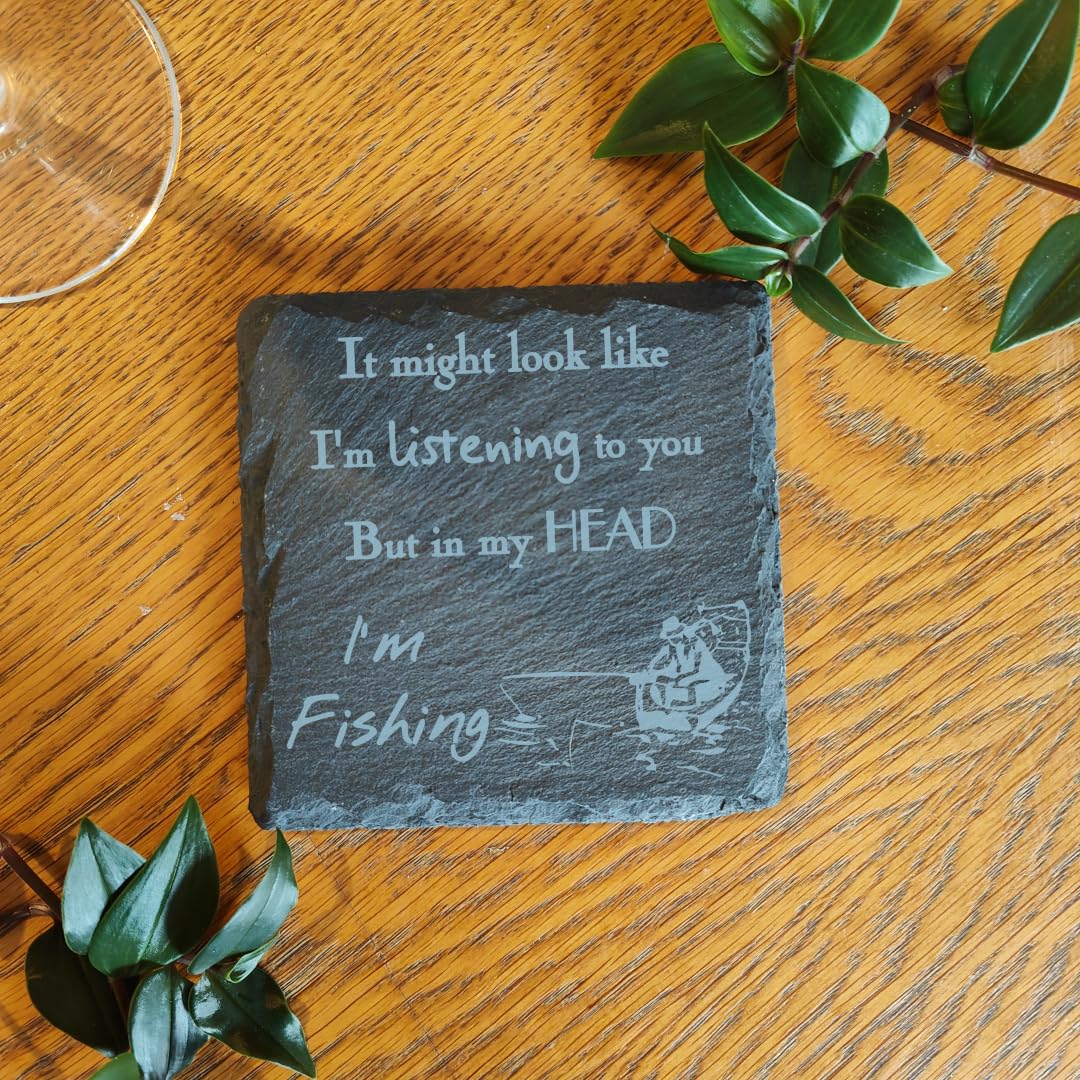 It might look like
I'm listening to you
But in my HEAD
I'm
Fishing